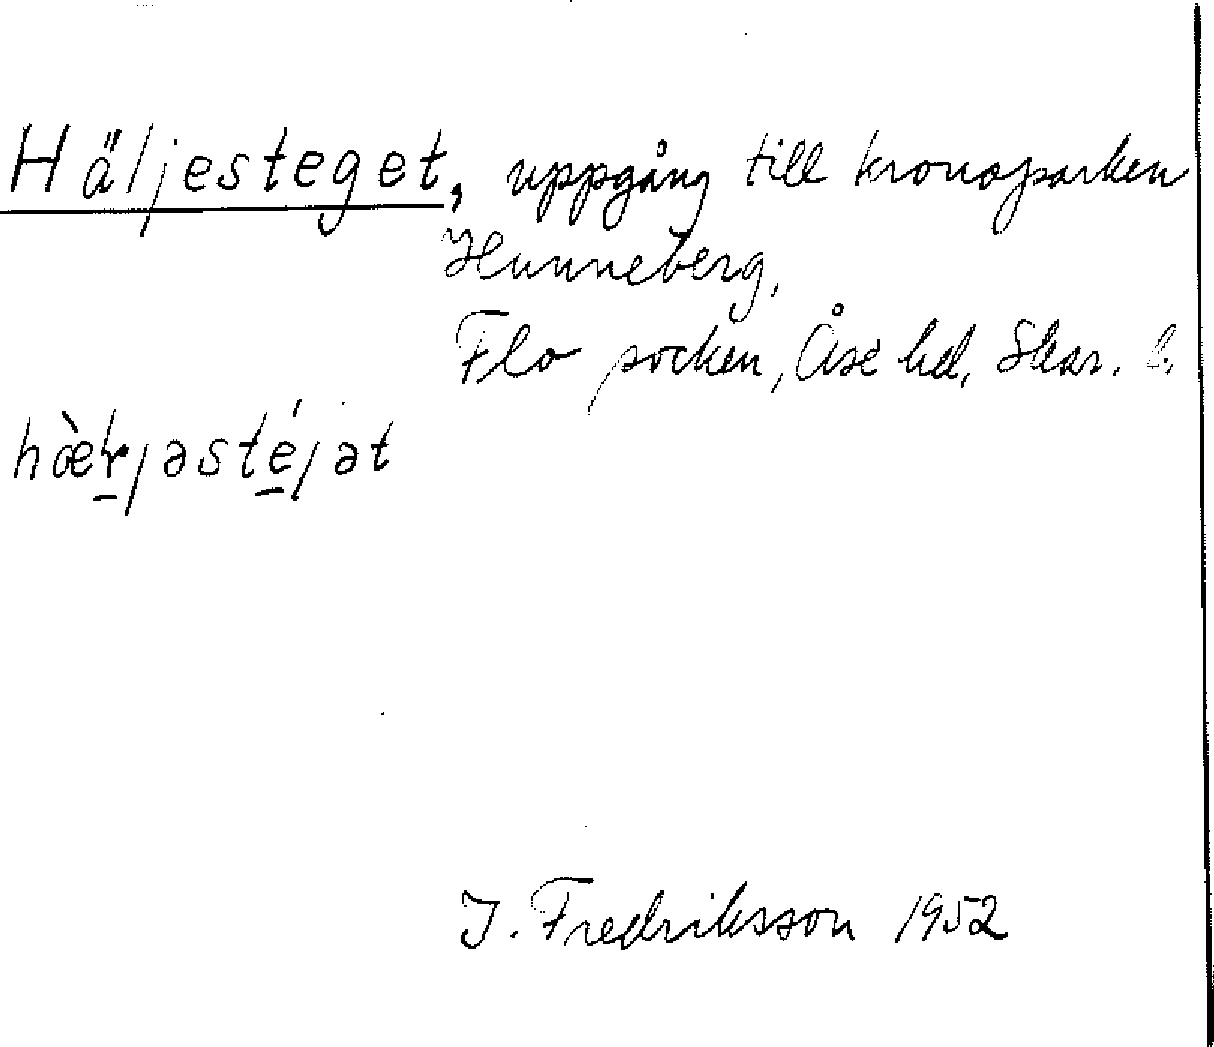 Häljesteget, uppgång till kronoparken
Hunneberg,
Flo socken, Åse hd, Skar. l.
hæ̀rjəstéjət
I. Fredriksson 1952